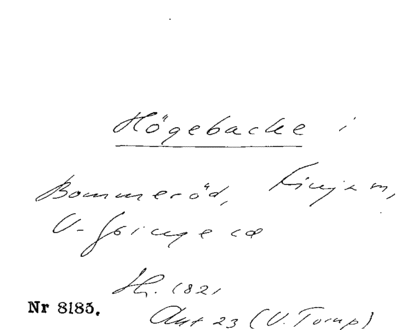 Högebacke i
Bommeröd, Finja sn,
V-Göinge
Hi. 1821
Akt 23 (V. Torup)
Nr 8185.